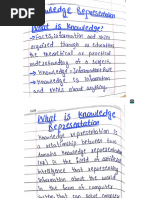 Knowledge Representation
What is Knowledge?
→ Facts, information and skills
acquired through an education
the theoretical or practical
understanding of a subject.
→ Knowledge = Information + Fact
→ Knowledge is information
and skills about anything.
What is Knowledge
Representation
Knowledge representation is
a relationship between two
domains knowledge representation
(KR) in the field of artificial
intelligence that representing
information about the domain
in the form of computer